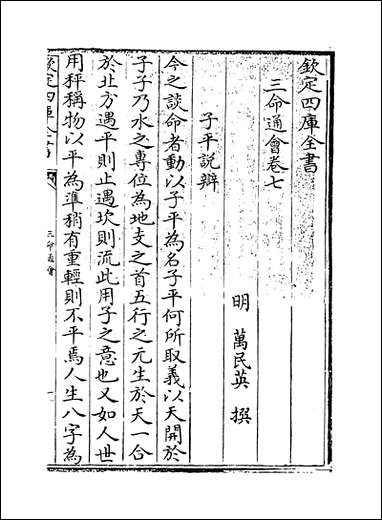 欽定四庫全書
三命通會卷七
明 萬民英 撰
子平説辯
今之談命者動以子平為名子平何所取義以天開於
子子乃水之專位為地支之首五行之元生於天一合
於北方遇平則止遇坎則流此用子之意也又如人世
用秤稱物以平為準稍有重輕則不平焉人生八字為
欽定四庫全書
三命通會
一